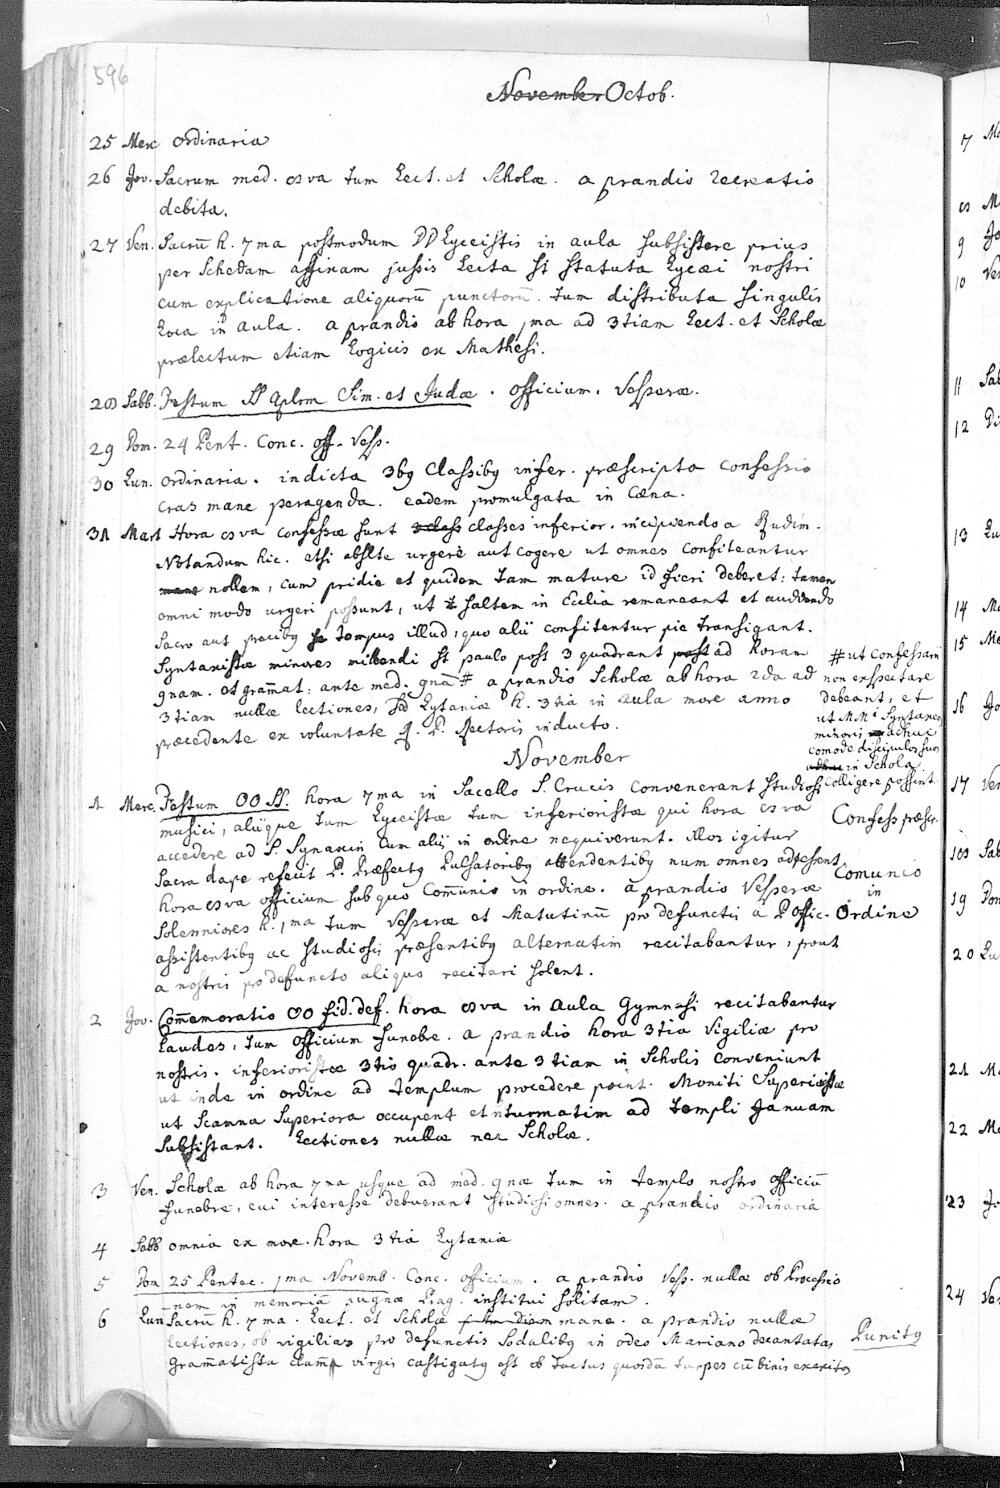 596
November Octob.
25 Merc ordinaria
26 Jov. Sacrum med. 8va tum Lect. et Scholæ. a prandio recreatio
debita.
27 Ven. Sacrū h. 7ma postmodum DD Lyceistis in aula subsistere prius
per Schedam affixam jussis Lecta st statuta Lycæi nostri
cum explicatione aliquorū punctorū. tum distributa singulis
Loca in aula. a prandio ab hora 1ma ad 3tiam Lect. et Scholæ
prælectum etiam Logicis ex Mathesi.
28 Sabb. Festum SS Aplrm Sim. et Judæ. officium. Vesperæ.
29 Dom. 24 Pent. Conc. off. Vesp.
30 Lun. ordinaria. indicta 3b9 Classib9 infer. præscripta confessio
cras mane peragenda. eadem promulgata in Cæna.
31 Mart Hora 8va confessæ sunt 3 class classes inferior. incipiendo a Rudim.
Notandum hic. etsi absolte urgere aut cogere ut omnes confiteantur
mane nollem, cum pridie et quidem tam mature id fieri deberet: tamen
omni modo urgeri possunt, ut saltem in Ecclia remaneant et audiendo
Sacro aut precib9 tempus illud, quo alii confitentur pie transigant.
Syntaxistæ minores mittendi st paulo post 3 quadrant post ad horam
9nam. et gram̄at: ante med. 9nā # a prandio Scholæ ab hora 2da ad
3tiam nullæ lectiones, sed Lytaniæ h. 3tia in aula more anno
præcedente ex voluntate R. P. Rectoris inducto.
# ut confessarii
non exspectare
debeant, et
ut MM i Syntaxeos
minoris adhuc
comode discipulos suos
adhuc in Schola
colligere possint.
November
1 Merc. Festum OO SS. hora 7ma in Sacello S. Crucis convenerant studiosi
musici, aliique tum Lyceistæ tum inferioristæ qui hora 8va
accedere ad S. Synaxin cum aliis in ordine nequiverunt. illos igitur
Sacra dape refecit P. Præfect9 Pulsatorib9 attendentib9 num omnes adessent
hora 8va officium sub quo Com̄unio in ordine. a prandio Vesperæ
solenniores h. 1ma tum Vesperæ et Matutinū pro defunctis a P. offic.
assistentib9 ac studiosis præsentib9 alternatim recitabantur, prout
a nostris pro defuncto aliquo recitari solent.
Confess præscr.
Comunio
in
Ordine
2 Jov. Com̄emoratio OO fid. def. hora 8va in Aula Gymnasii recitabantur
Laudes, tum officium funebre. a prandio hora 3tia Vigiliæ pro
nostris. inferioristæ 3tio quadr. ante 3tiam in Scholis conveniunt
ut inde in ordine ad templum procedere possint. Moniti Superioristæ
ut Scamna Superiora occupent et n turmatim ad templi Januam
subsistant. Lectiones nullæ nec Scholæ.
3 Ven. Scholæ ab hora 7ma usque ad med. 9næ tum in templo nostro officiū
funebre, cui interesse debuerant studiosi omnes. a prandio ordinaria
4 Sabb omnia ex more. hora 3tia Lytaniæ
5 Dom 25 Pentec. 1ma Novemb. Conc. officium. a prandio Vesp. nullæ ob Processio
nem in memoriā pugnæ Prag. institui solitam.
6 Lun Sacrū h. 7ma. Lect. et Scholæ mane. a prandio nullæ
Lectiones, ob vigilias pro defunctis Sodalib9 in odeo Mariano decantatas
Gram̄atista clam virgis castigat9 est ob tactus quosdā turpes cū binis exercitos
Punit9
7
8
9
10
11
12
13
14
15
16
17
18
19
20
21
22
23
24